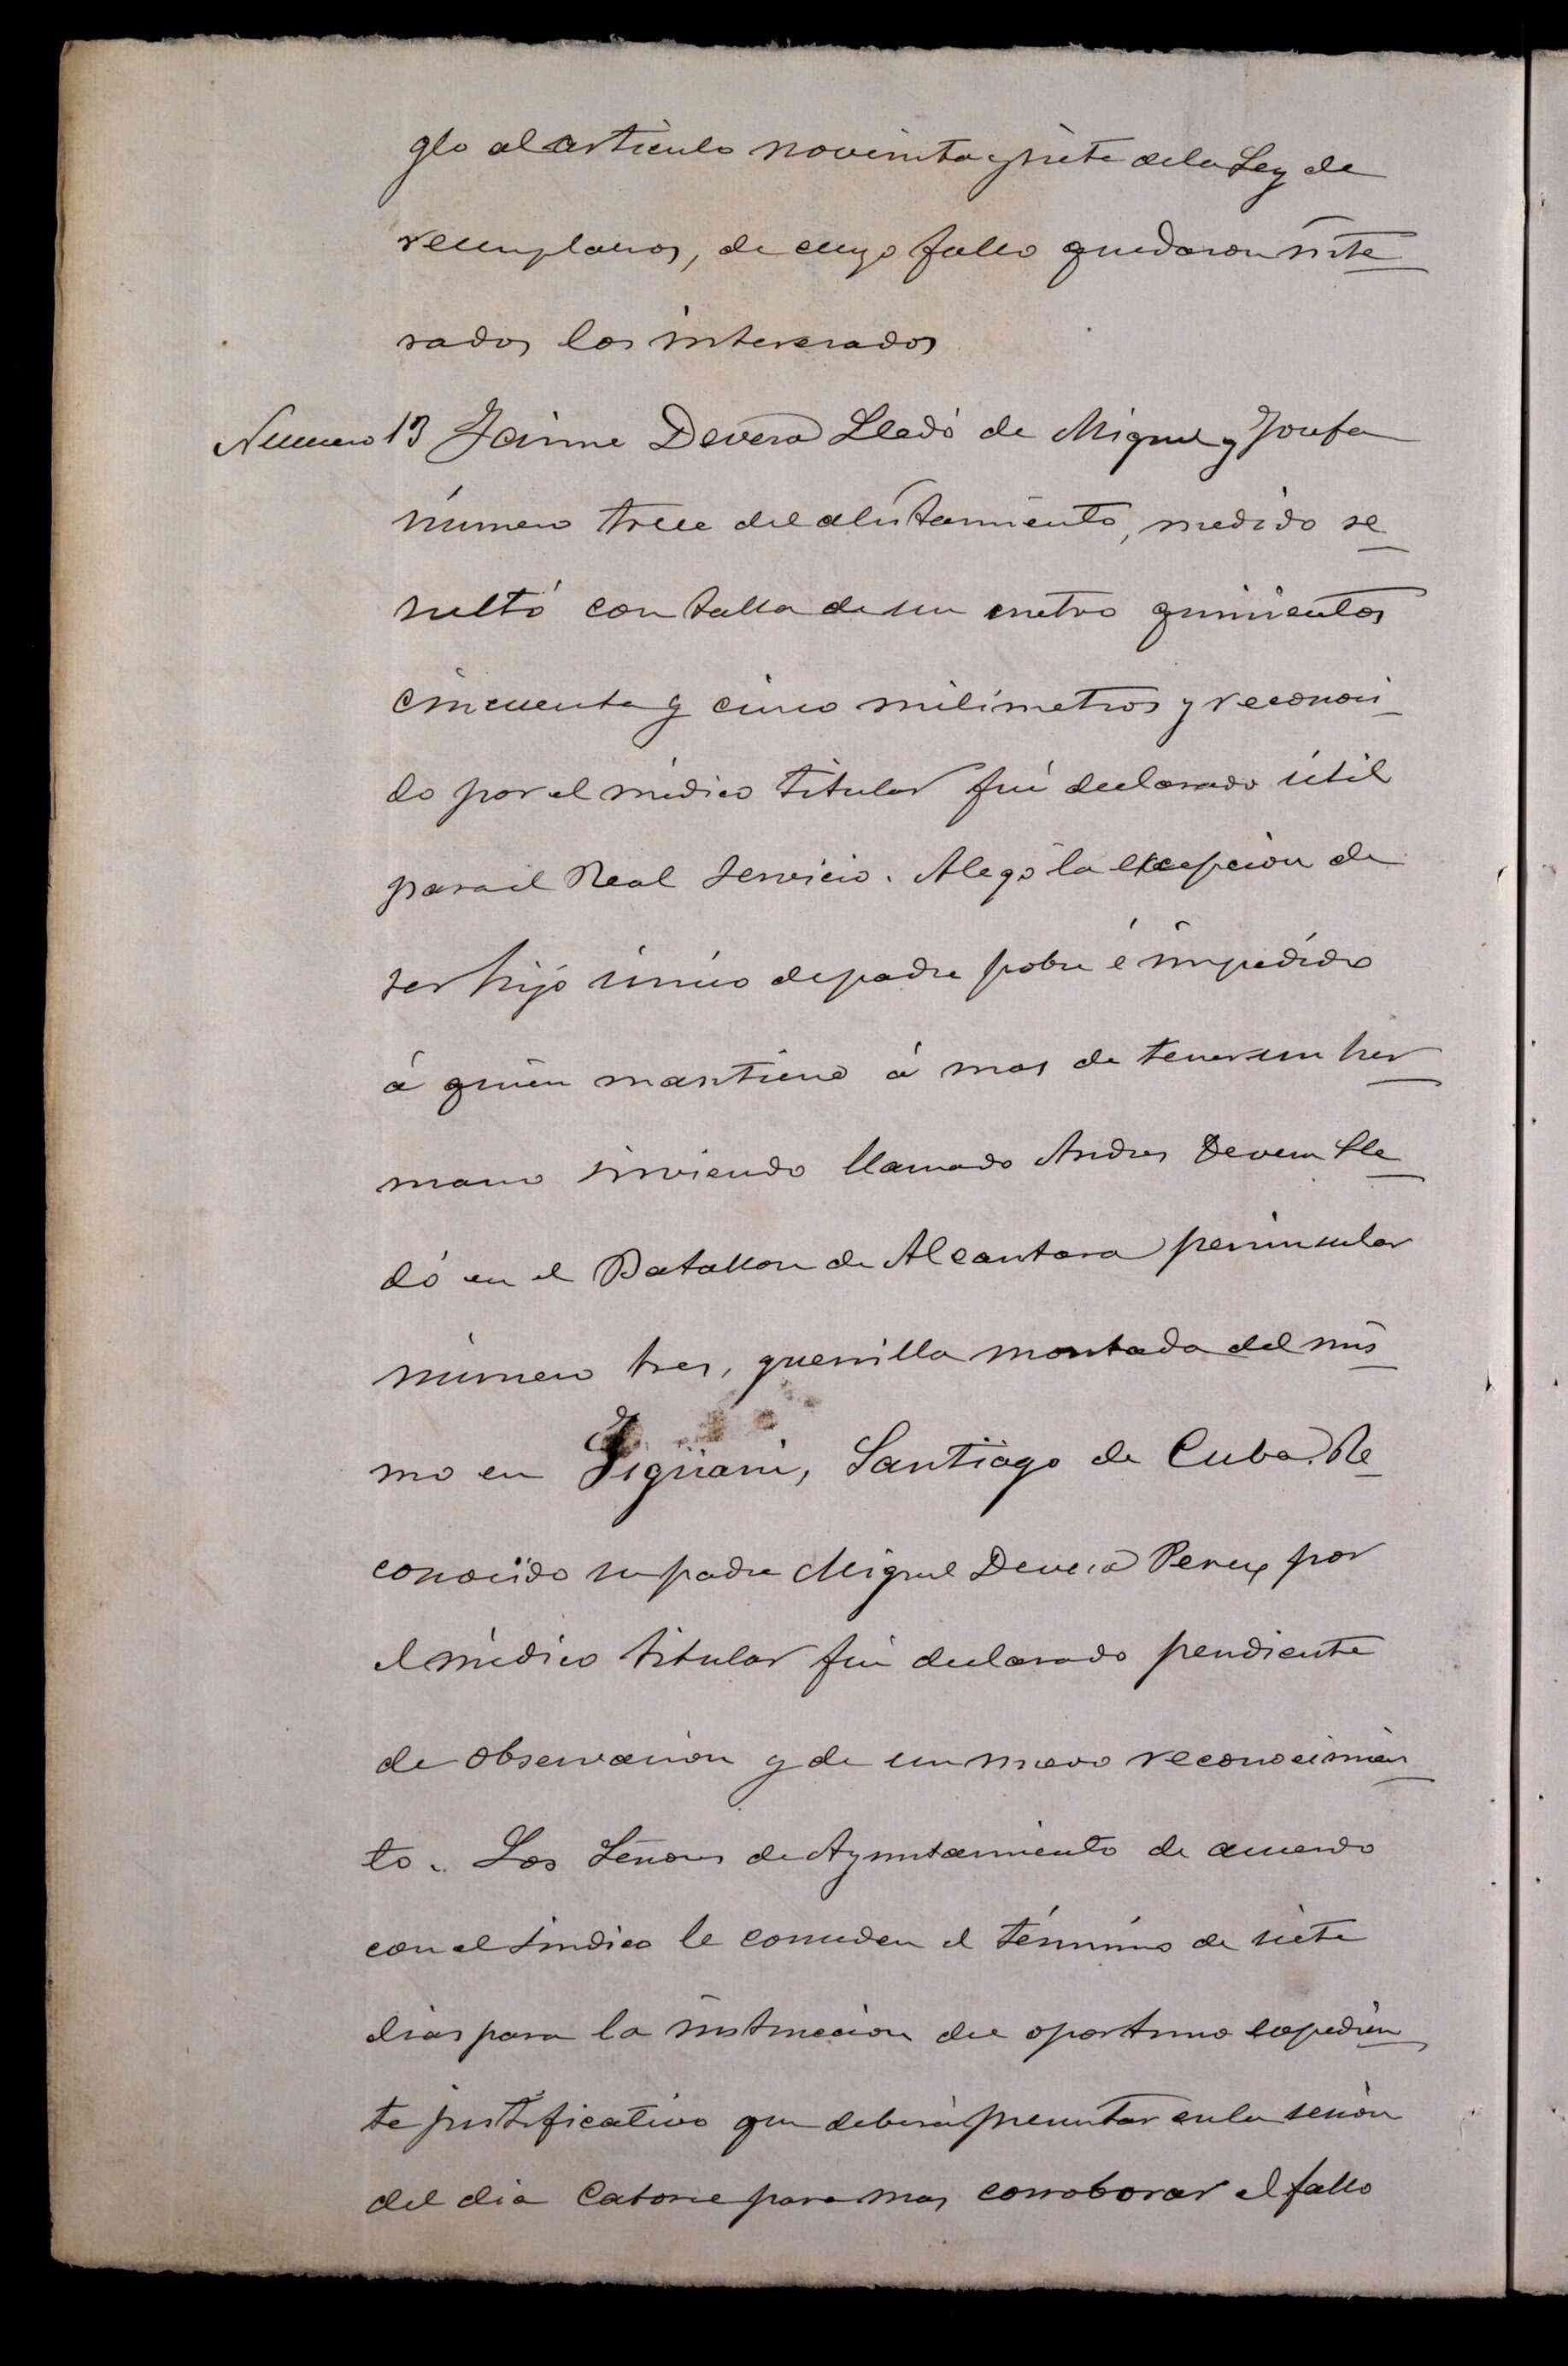 glo al artículo noventa y siete de la Ley de
reemplazos, de cuyo fallo quedaron ente
rados los interesados
Numero 13 Jaime Devesa Lledó de Miguel y Josefa
número trece del alistamiento, medido re
sultó con talla de un metro quinientos
cincuenta y cinco milímetros y reconoci
do por el médico titular fué declarado útil
para el Real servicio. Alegó la excepcion de
ser hijo único de padre pobre é impedido
á quien mantiene á mas de tener un her
mano sirviendo llamado Andres Devesa Lle
dó en el Batallon de Alcantara peninsular
número tres, guerrilla montada del mis
mo en Jiguani, Santiago de Cuba. Re
conocido su padre Miguel Devesa Perez por
el médico titular fué declarado pendiente
de observacion y de un nuevo reconocimien
to. Los Señores de Ayuntamiento de acuerdo
con el Sindico le conceden el término de siete
dias para la instruccion del oportuno expedien
te justificativo que deberá presentar en la sesión
del dia catorce para mas corroborar el fallo